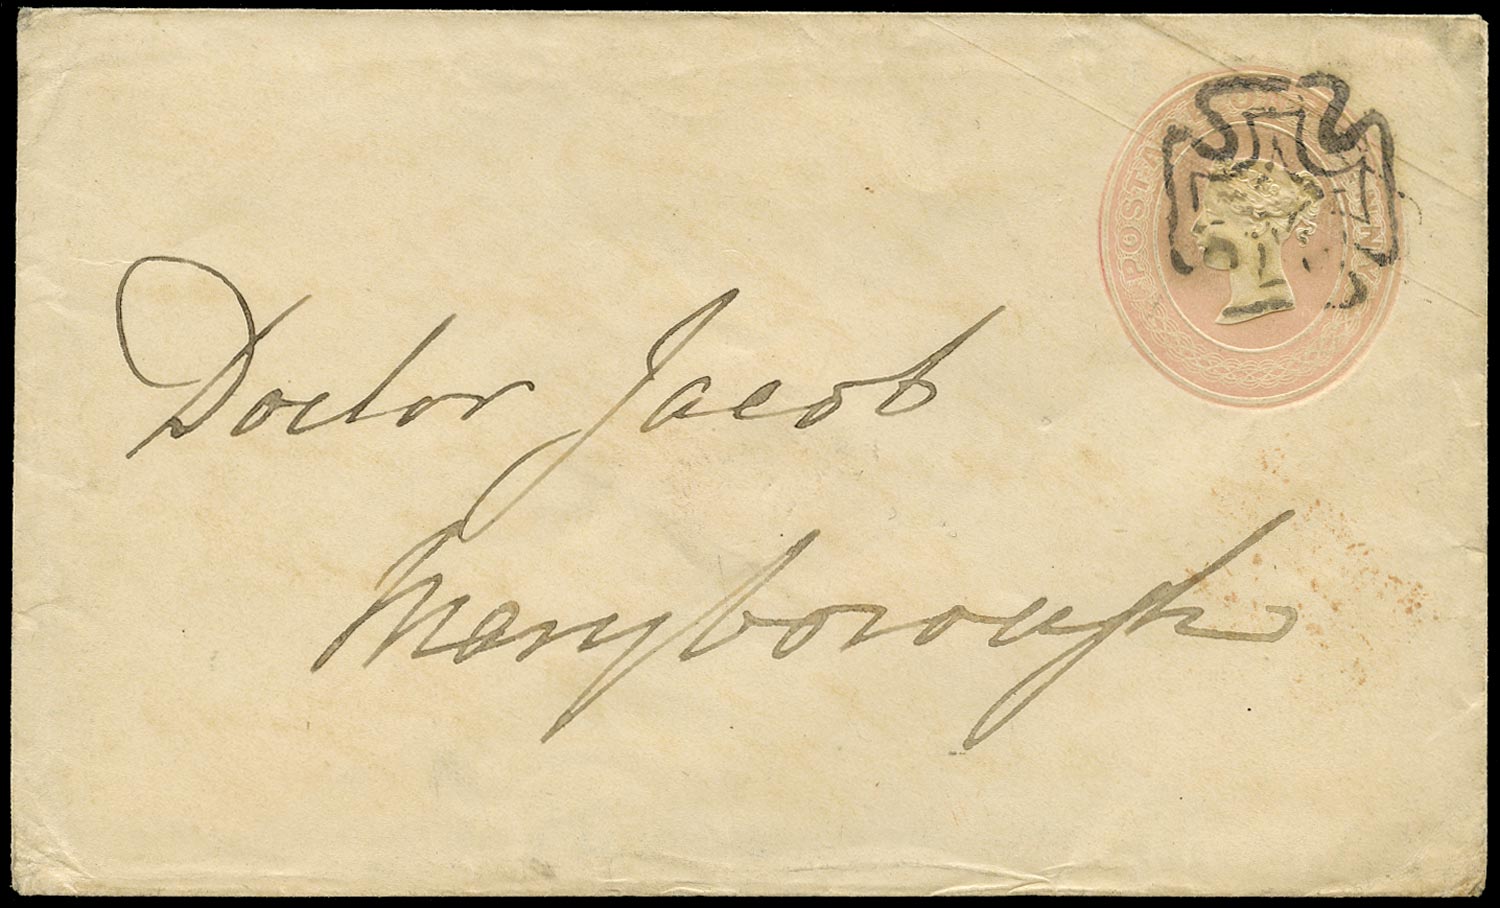 POSTAGE ONE PENNY
Doctor Jacob
Maryborough